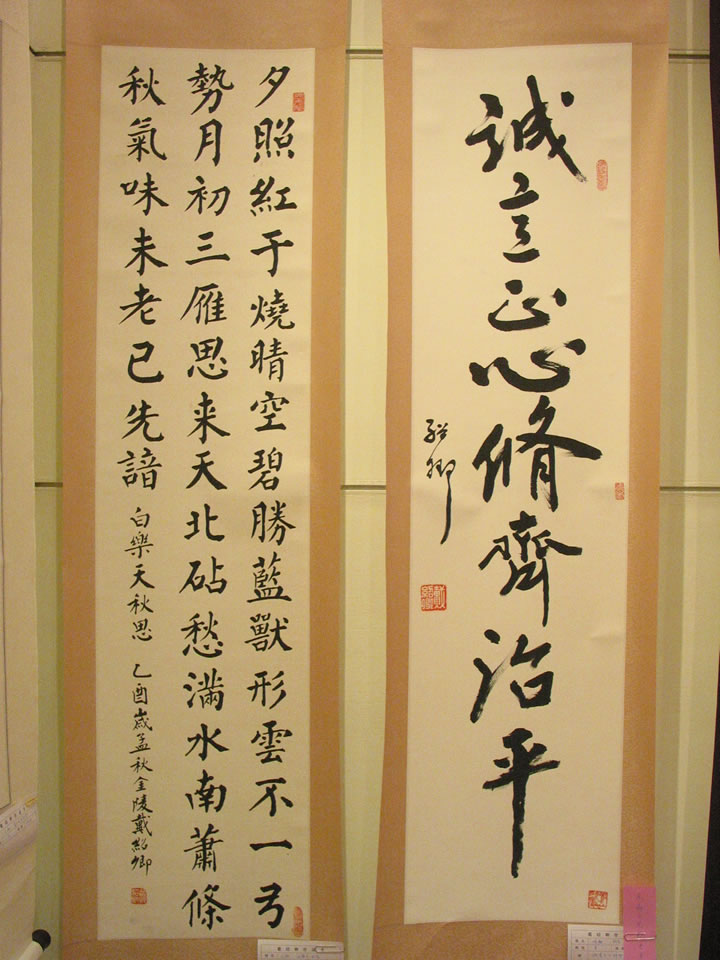 誠意正心脩齊治平
紹卿
夕照紅于燒晴空碧勝藍獸形雲不一弓
勢月初三雁思来天北砧愁滿水南蕭條
秋氣味未老已先諳 白樂天秋思 乙酉歲孟秋金陵戴紹卿